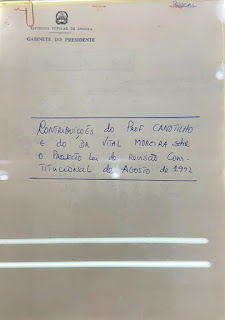 REPÚBLICA POPULAR DE ANGOLA
GABINETE DO PRESIDENTE
CONTRIBUIÇÕES do PROF CANOTILHO
E do DR VITAL MOREIRA sobre
O PROJECTO LEI DE REVISÃO CONS-
TITUCIONAL DE AGOSTO DE 1992